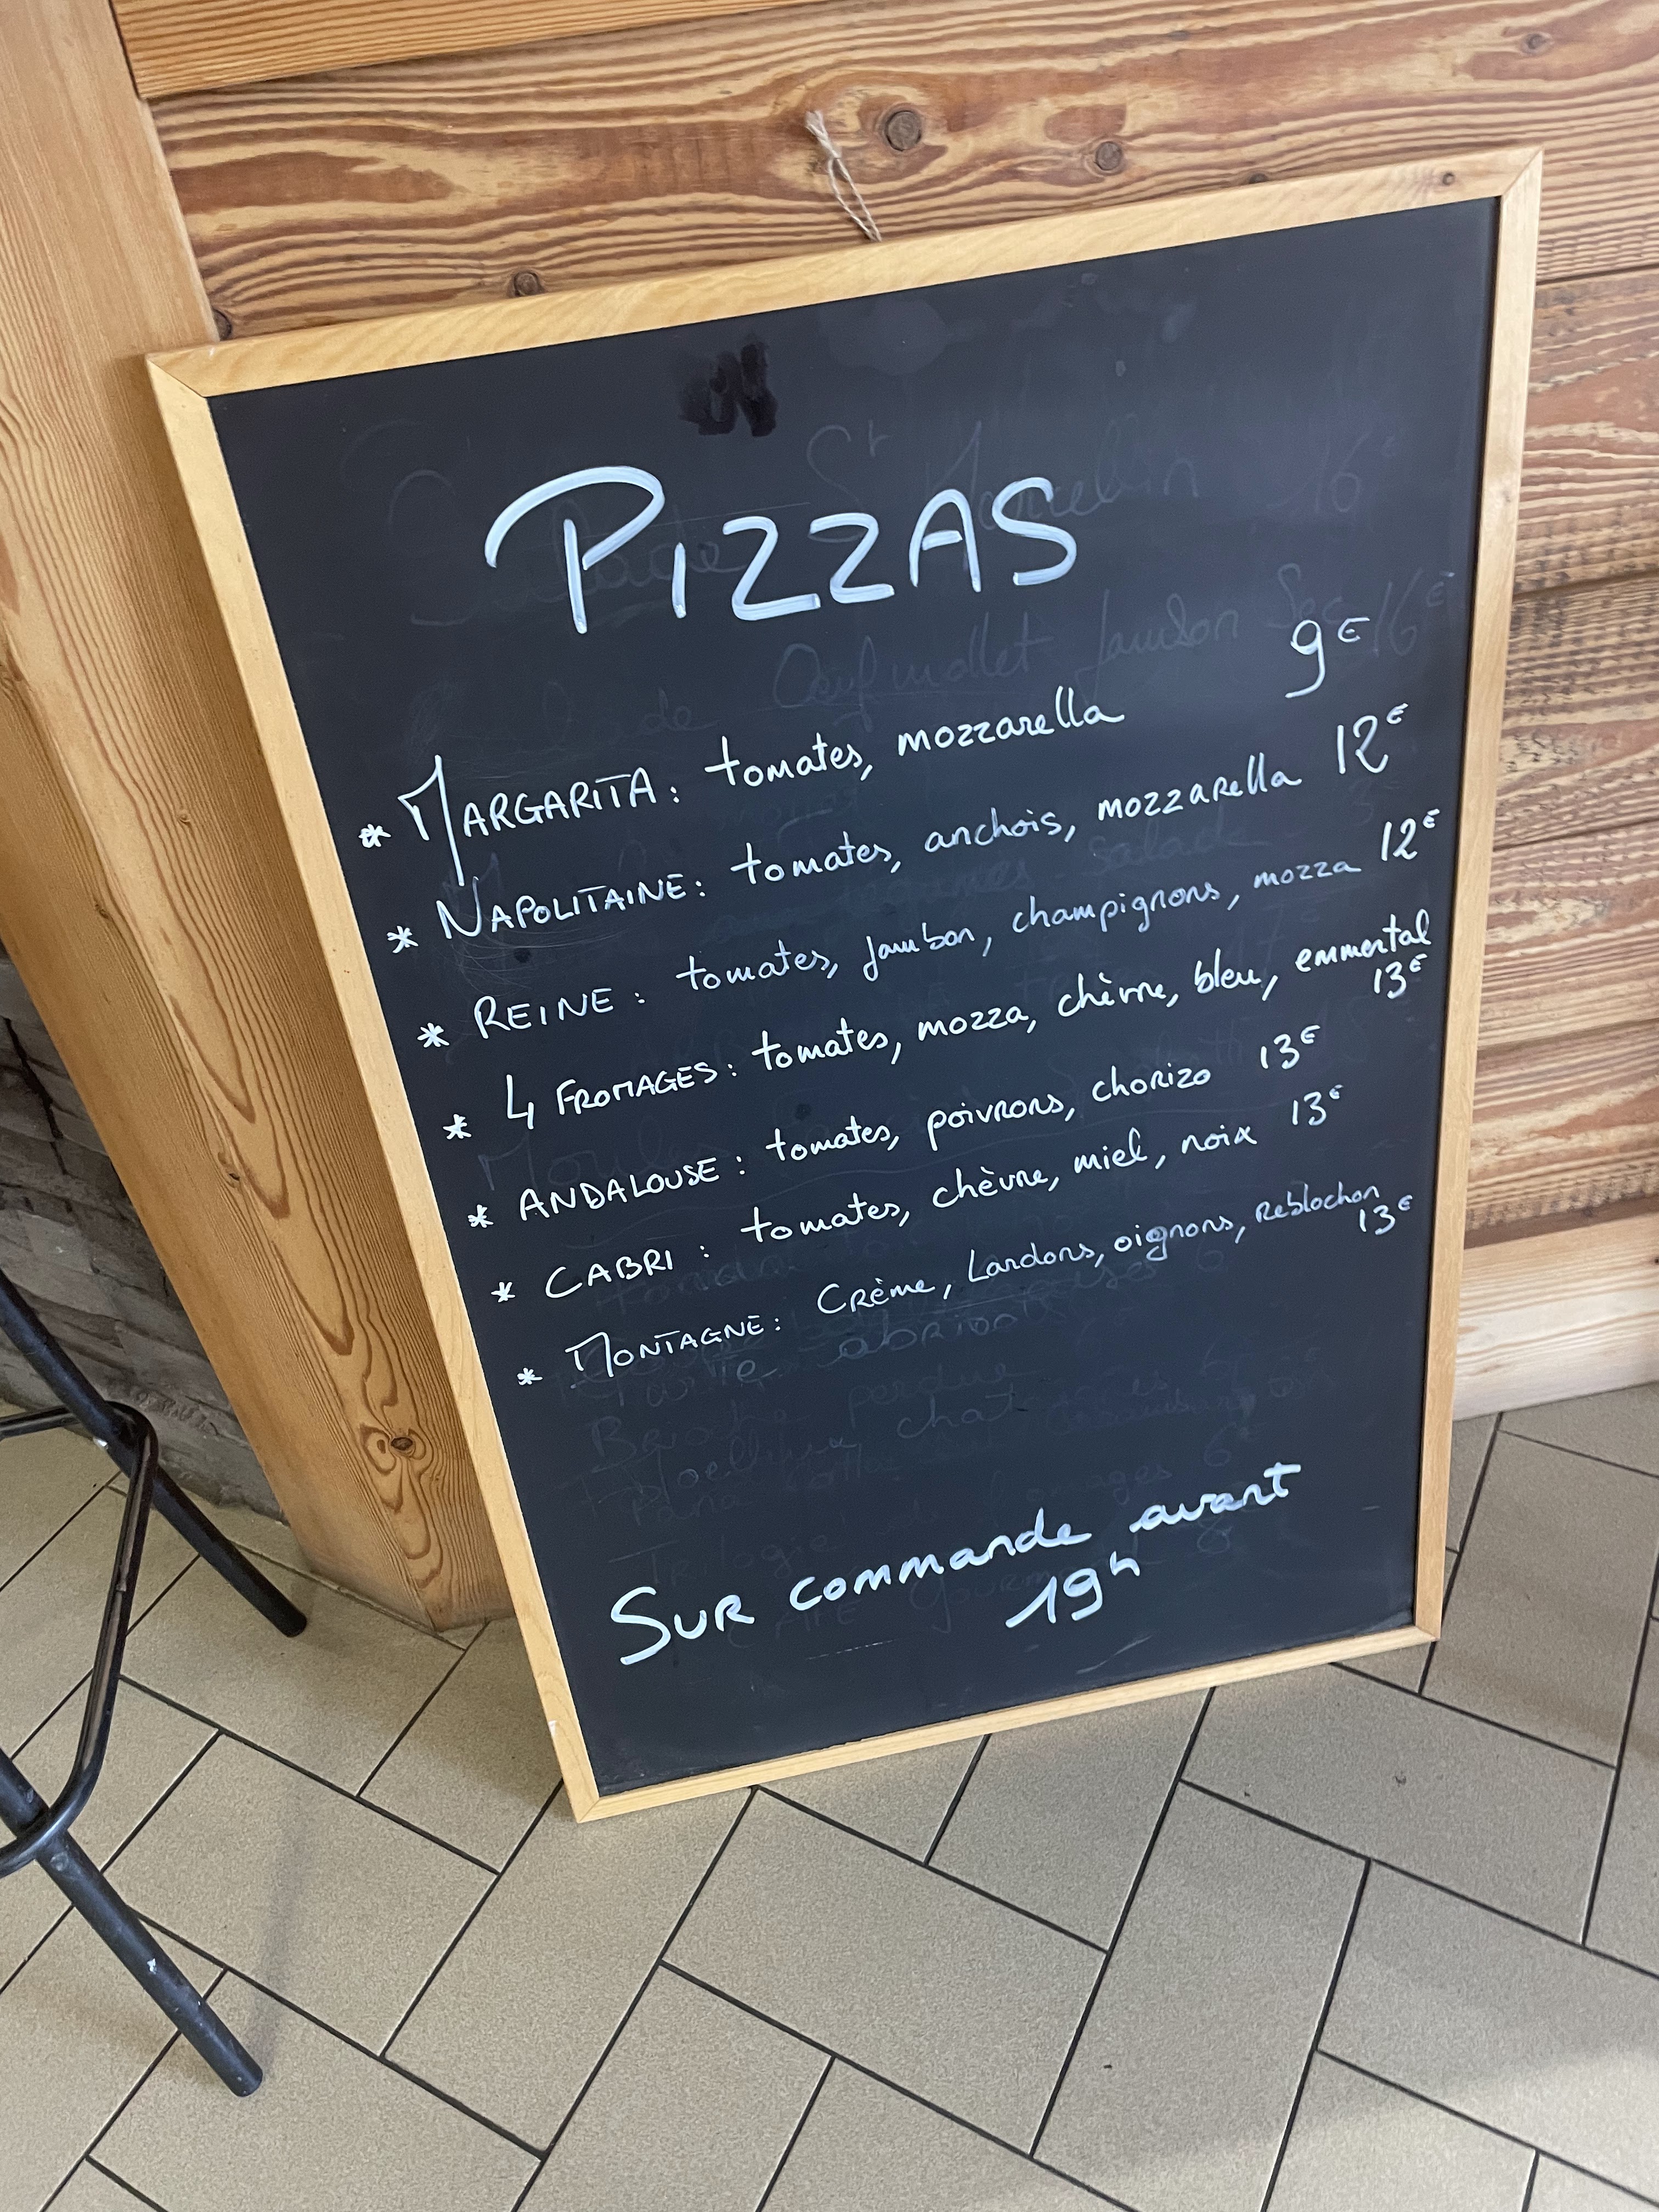 PIZZAS
* MARGARITA : tomates, mozzarella 9€
* NAPOLITAINE : tomates, anchois, mozzarella 12€
* REINE : tomates, jambon, champignons, mozza 12€
* 4 FROMAGES : tomates, mozza, chèvre, bleu, emmental
13€
* ANDALOUSE : tomates, poivrons, chorizo 13€
* CABRI : tomates, chèvre, miel, noix 13€
* MONTAGNE : Crème, Lardons, oignons, reblochon
13€
Sur commande avant
19h